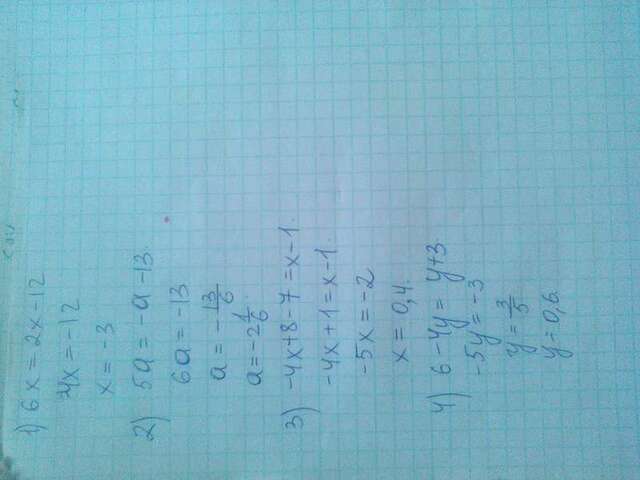 1) 6x = 2x - 12
4x = -12
x = -3
2) 5a = -a - 13.
6a = -13
a = -13/6
a = -2 1/6
3) -4x + 8 - 7 = x - 1.
-4x + 1 = x - 1.
-5x = -2
x = 0,4.
4) 6 - 4y = y + 3.
-5y = -3
y = 3/5
y = 0,6.